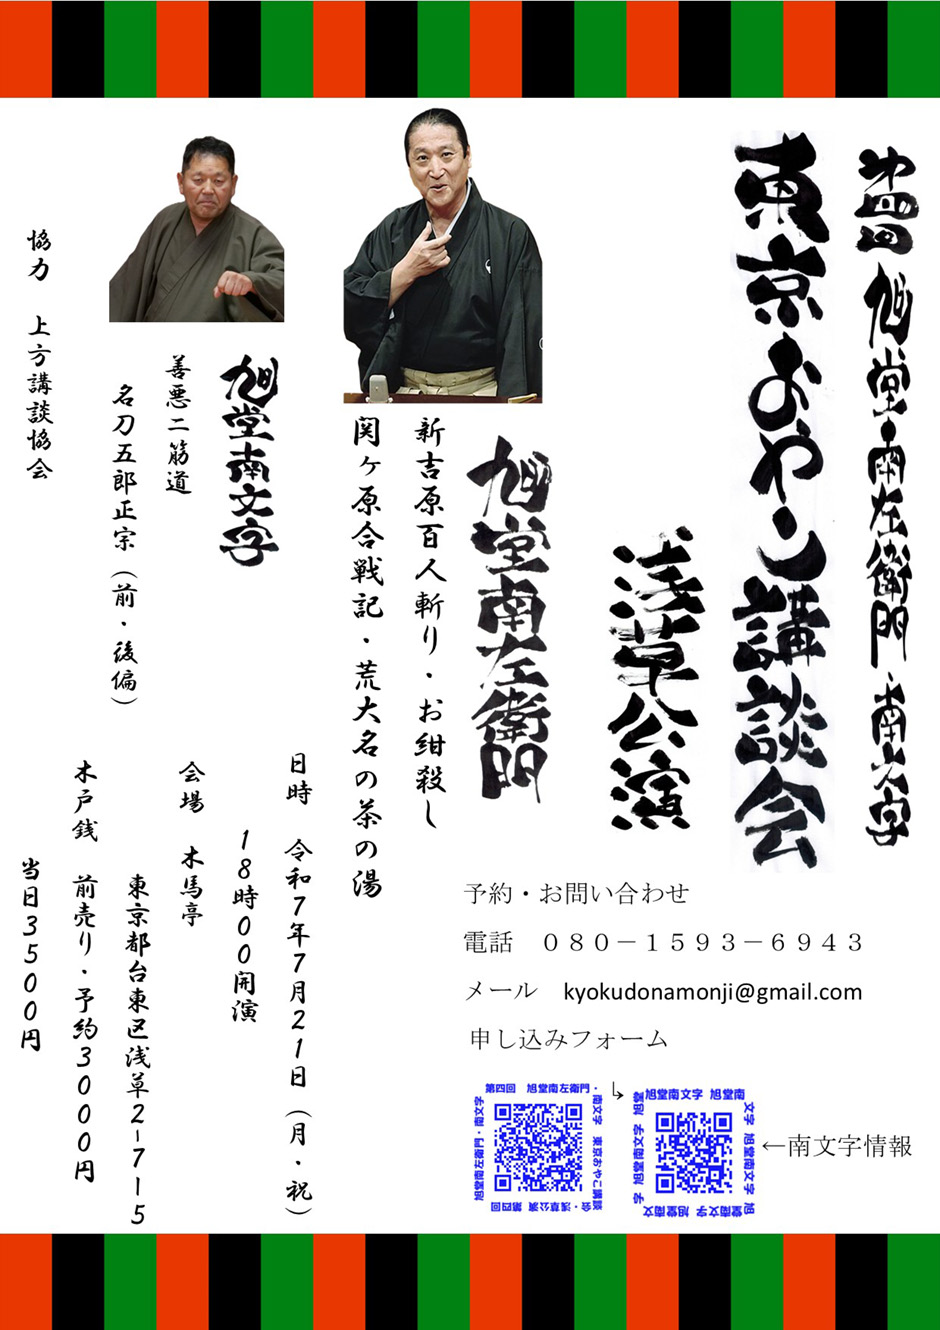 第四回 旭堂南左衛門・南文字
東京おやこ講談会
浅草公演
旭堂南左衛門
新吉原百人斬り・お紺殺し
関ヶ原合戦記・荒大名の茶の湯
旭堂南文字
善悪二筋道
名刀五郎正宗（前・後偏）
協力　上方講談協会
日時　令和7年7月21日（月・祝）
18時00開演
会場　木馬亭
東京都台東区浅草2-7-5
木戸銭　前売り・予約3000円
当日3500円
予約・お問い合わせ
電話　０８０－１５９３－６９４３
メール　kyokudonamonji@gmail.com
申し込みフォーム
第四回　旭堂南左衛門・南文字　東京おやこ講談会・浅草公演
第四回　旭堂南左衛門・南文字
旭堂南文字 旭堂南文字 旭堂南文字 旭堂南文字 旭堂南文字 旭堂南文字
←南文字情報